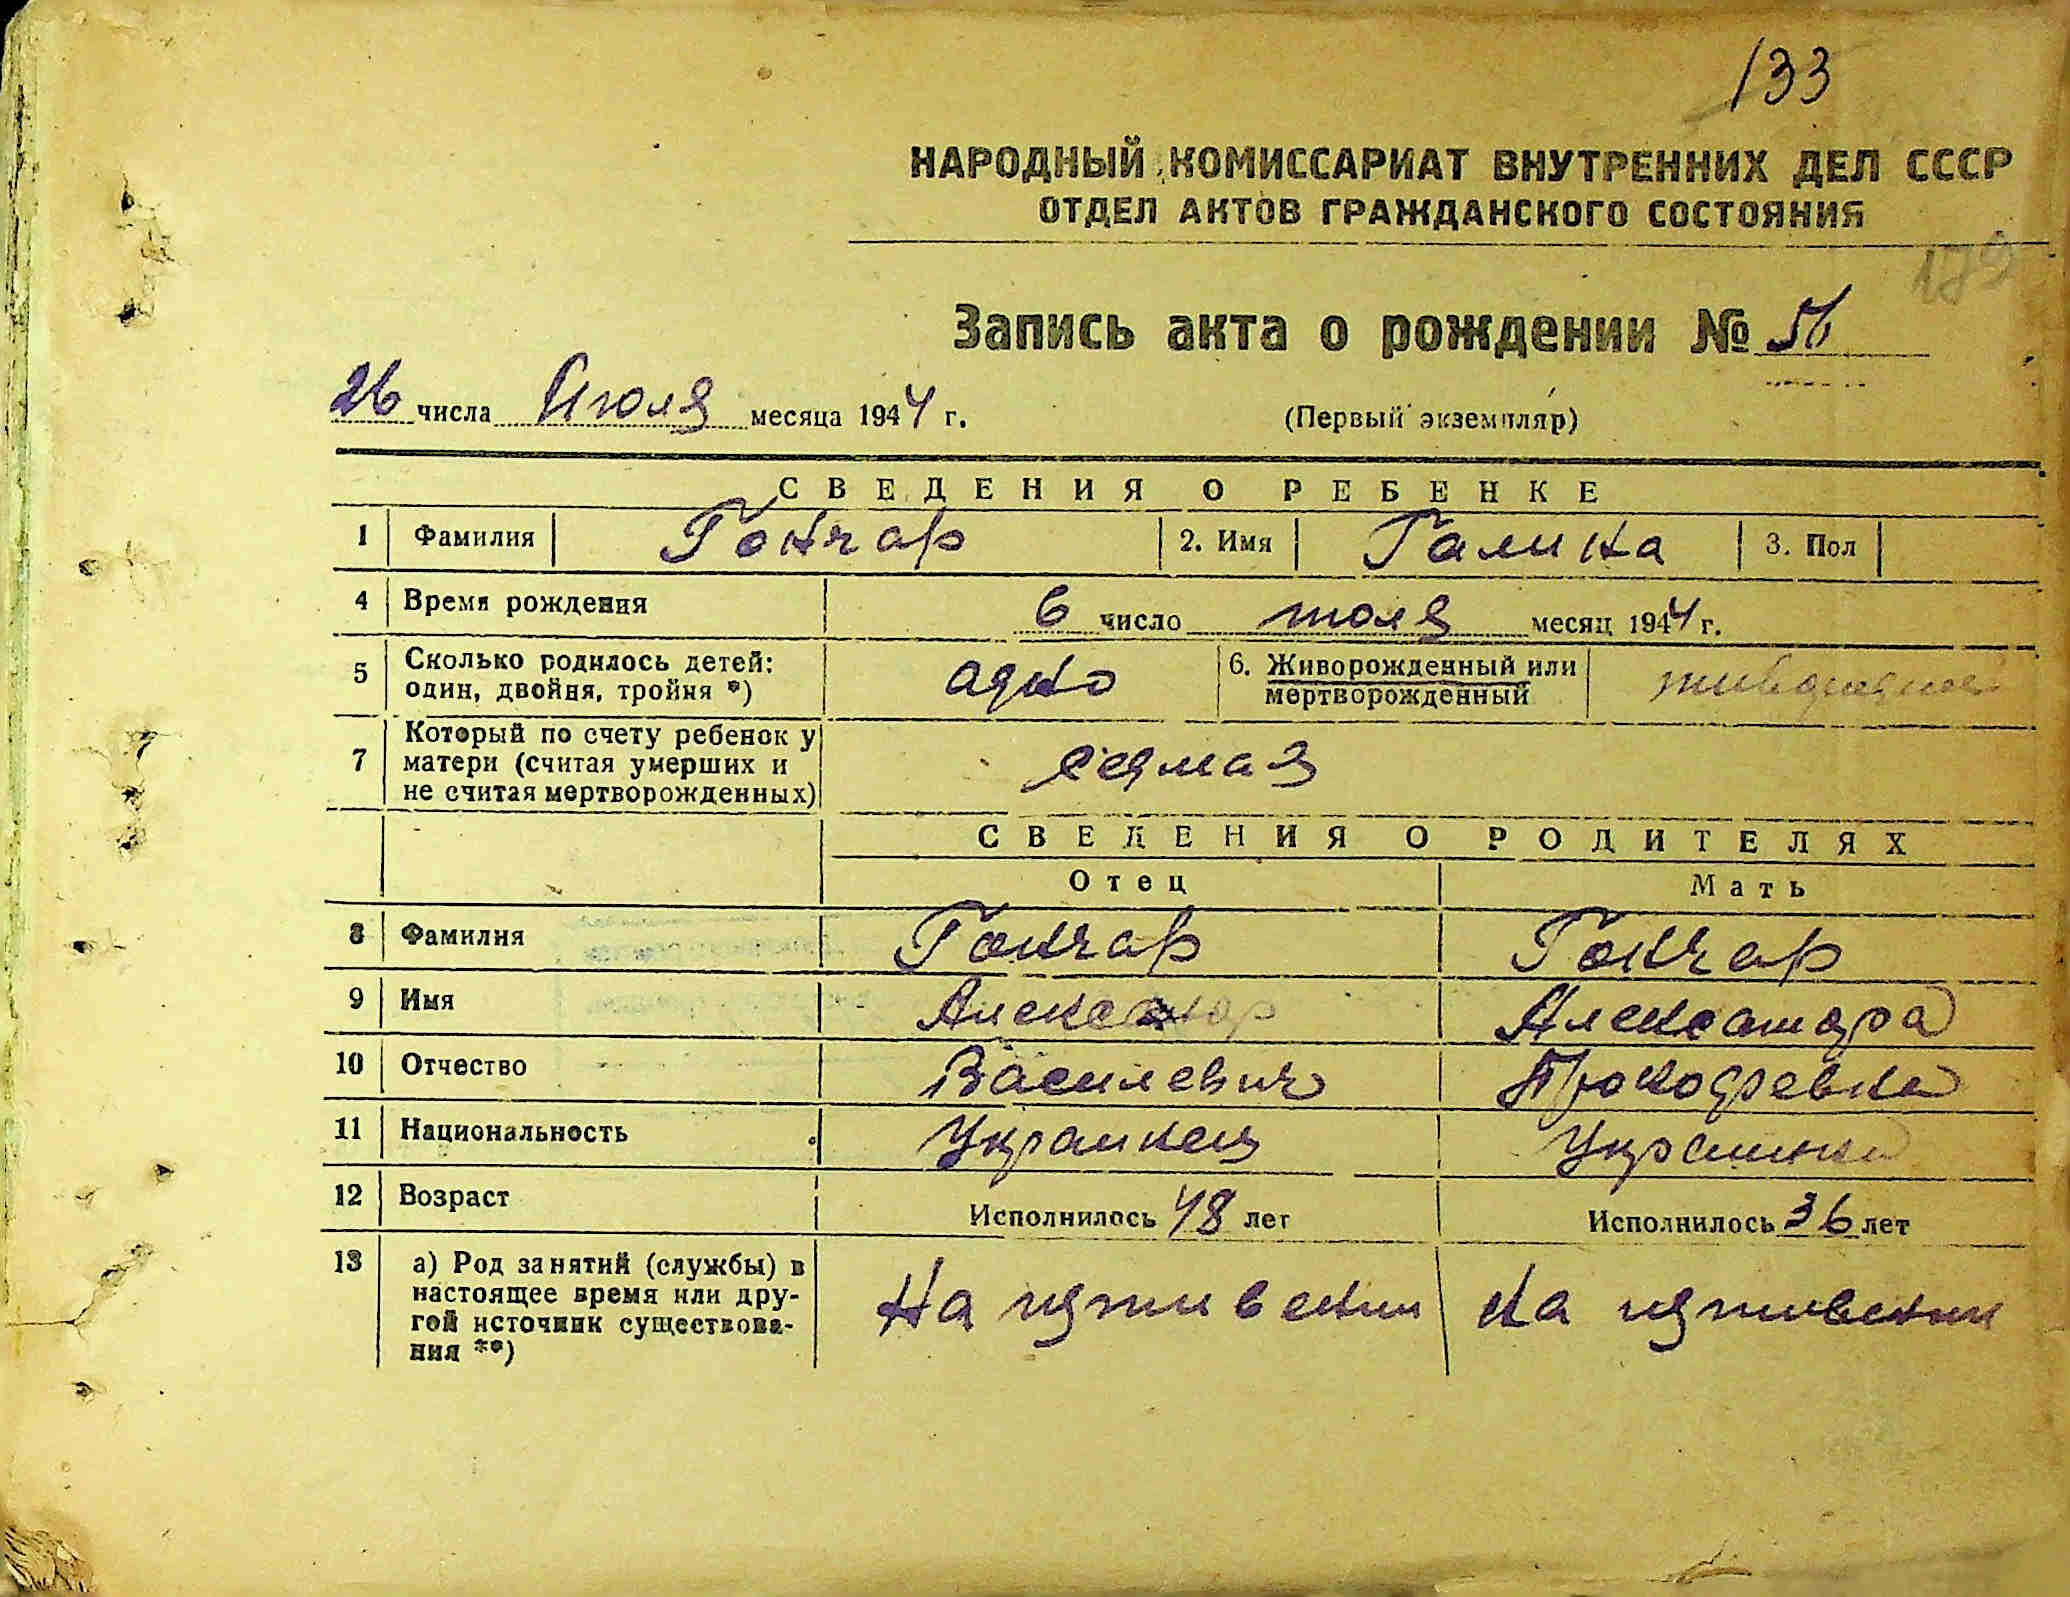 133
НАРОДНЫЙ КОМИССАРИАТ ВНУТРЕННИХ ДЕЛ СССР
ОТДЕЛ АКТОВ ГРАЖДАНСКОГО СОСТОЯНИЯ
179
Запись акта о рождении № 56
26 числа Июля месяца 1944 г. (Первый экземпляр)
СВЕДЕНИЯ О РЕБЕНКЕ
1 Фамилия Гончар 2. Имя Галина 3. Пол
4 Время рождения 6 число июля месяц 1944 г.
5 Сколько родилось детей: один, двойня, тройня *) адно 6. Живорожденный или мертворожденный
7 Который по счету ребенок у матери (считая умерших и не считая мертворожденных) седмая
СВЕДЕНИЯ О РОДИТЕЛЯХ
Отец Мать
8 Фамилия Гончар Гончар
9 Имя Александр Александра
10 Отчество Василевич Прокофевна
11 Национальность Украинец Украинка
12 Возраст Исполнилось 48 лет Исполнилось 36 лет
13 а) Род занятий (службы) в
настоящее время или дру-
гой источник существова-
ния **)
На иждивении на иждивении